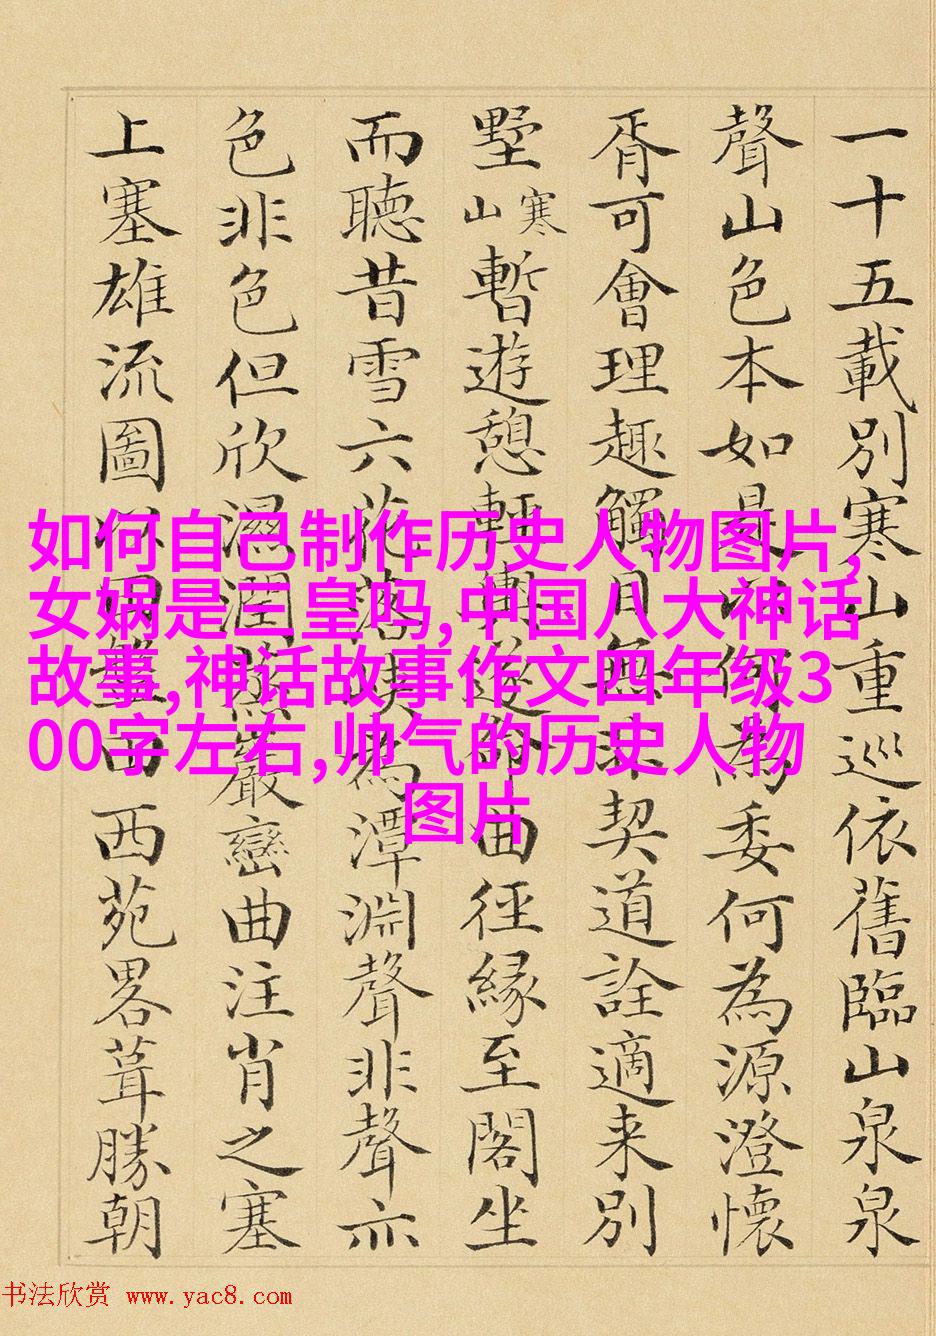 一十五載別寒山重巡依舊臨山泉泉
聲山色本如是何為委何為源澄懷
胥可會理趣觸目無契道詮適来別
墅寒山暫遊憩輕輿遂曲徑緣至閣坐
而聽昔雪六花落為潭淵聲非聲亦
色非色但欣濕潤巖巒曲注肖之塞
上塞雄流圖西苑畧葺勝朝
如何自己制作历史人物图片,
女娲是三皇吗,中国八大神话
故事,神话故事作文四年级3
00字左右,帅气的历史人物
图片
书法欣赏 www.yac8.com